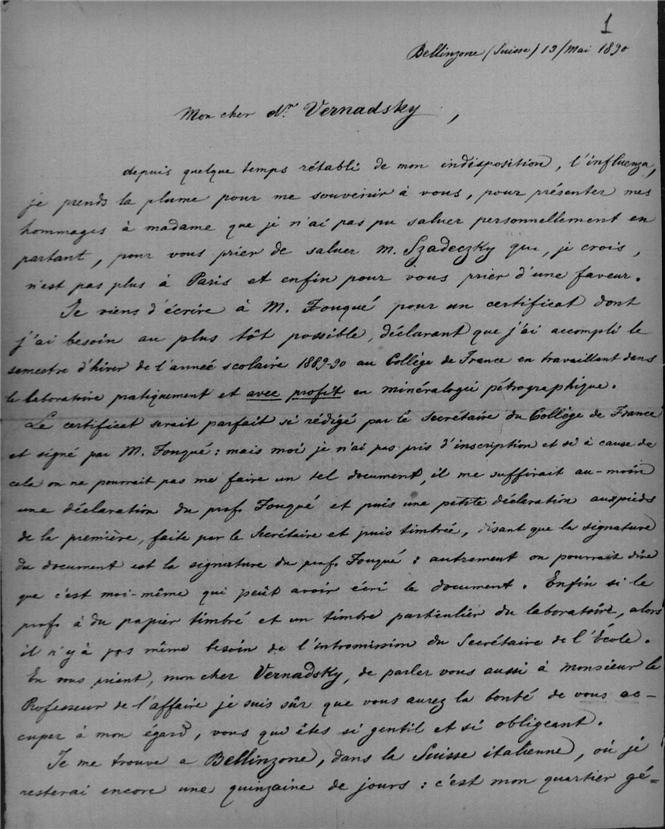 1
Bellinzone (Suisse) 13/Mai 1890
Mon cher Mr. Vernadsky,
depuis quelque temps rétabli de mon indisposition, l'influenza,
je prends la plume pour me souvenir à vous, pour présenter mes
hommages à madame que je n'ai pas pu saluer personnellement en
partant, pour vous prier de saluer M. Szadeczky qui, je crois,
n'est pas plus à Paris et enfin pour vous prier d'une faveur.
Je viens d'écrire à M. Fouqué pour un certificat dont
j'ai besoin au plus tôt possible, déclarant que j'ai accompli le
semestre d'hiver de l'année scolaire 1889-90 au Collège de France en travaillant dans
le laboratoire pratiquement et avec profit en minéralogie pétrographique.
Le certificat serait parfait si rédigé par le Secrétaire du Collège de France
et signé par M. Fouqué : mais moi je n'ai pas pris d'inscription et si à cause de
cela on ne pourrait pas me faire un tel document, il me suffirait au-moin
une déclaration du prof. Fouqué et puis une petite déclaration aux pieds
de la première, faite par le Secrétaire et puis timbrée, disant que la signature
du document est la signature du prof. Fouqué : autrement on pourrait dire
que c'est moi-même qui peût avoir écri le document. Enfin si le
prof. à du papier timbré et un timbre particulier du laboratoire, alors
il n'y à pas même besoin de l'intromission du Secrétaire de l'École.
En vous prient, mon cher Vernadsky, de parler vous aussi à monsieur le
Professeur de l'affaire je suis sûr que vous aurez la bonté de vous oc-
cuper à mon égard, vous que êtes si gentil et si obligeant.
Je me trouve a Bellinzone, dans la Suisse italienne, où je
resterai encore une quinzaine de jours : c'est mon quartier gé-